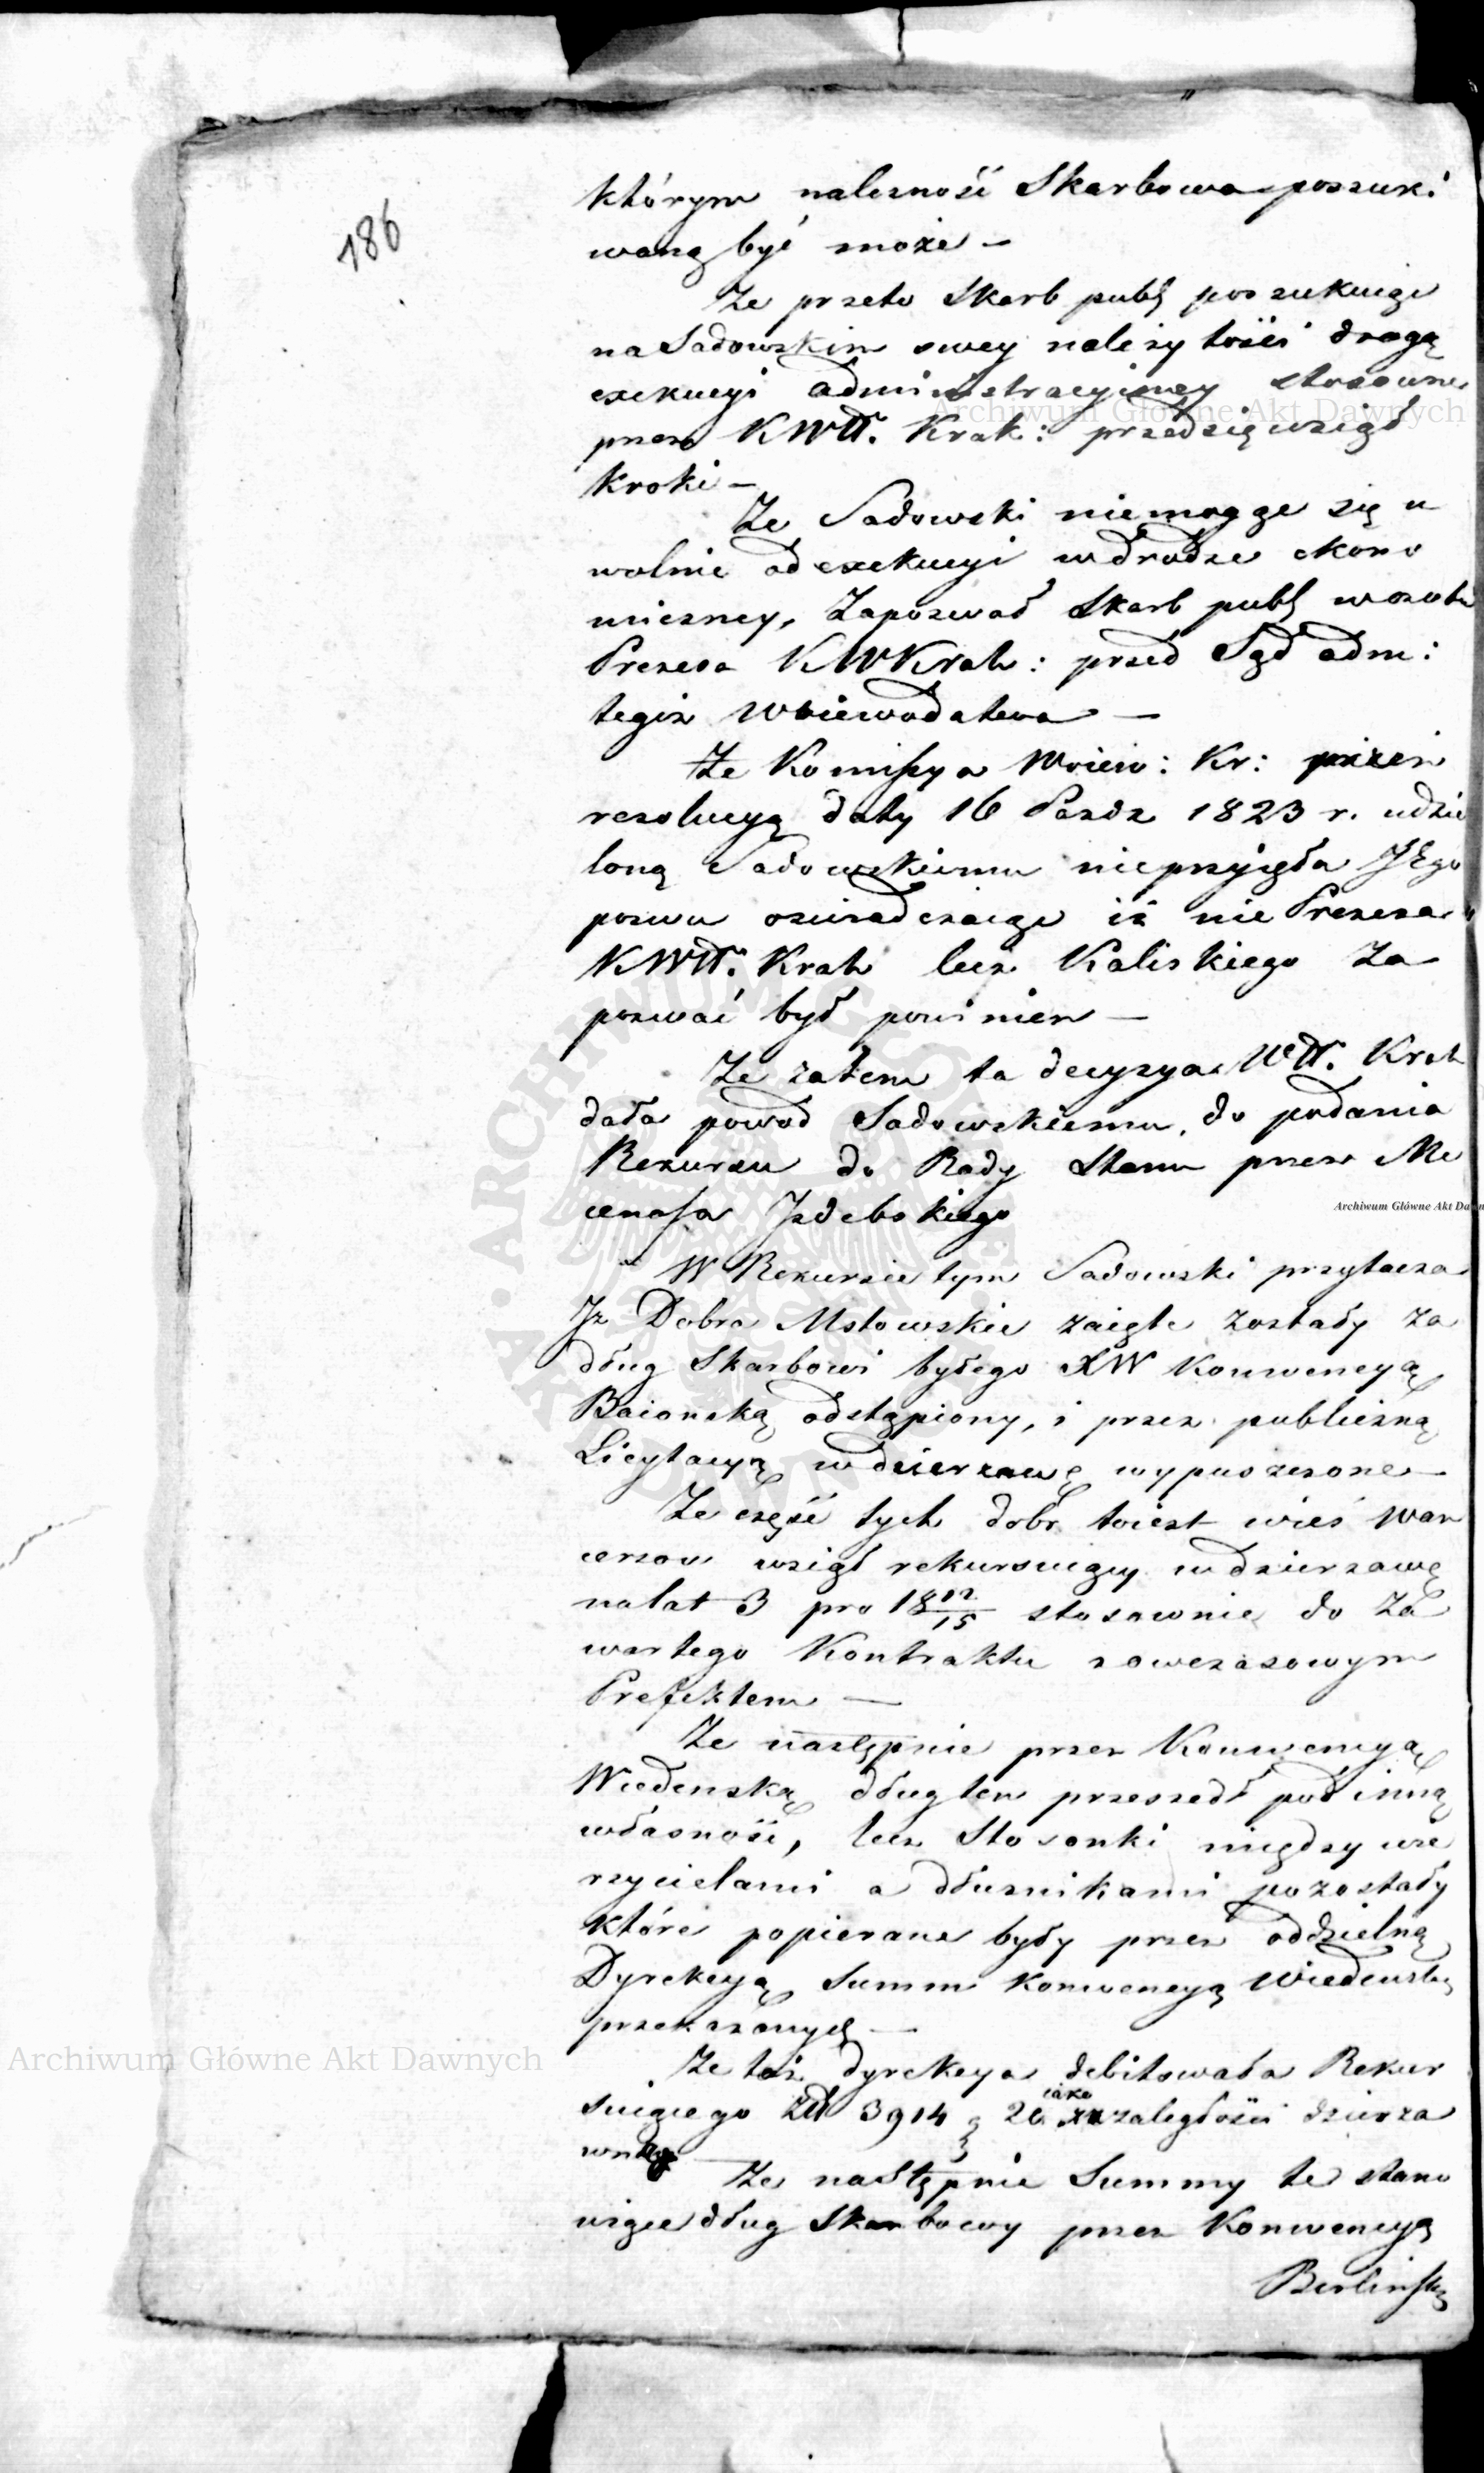 186
którym należność Skarbowa poszuki
waną być może –
Że przeto Skarb publ poszukuiąc
na Sadowskim swey należytości drogą
exekucyi administracyiney stosowne
przez KWtt. Krak: przedsięwziął
kroki –
Że Sadowski niemogąc się u
wolnić od exekucyi w drodze ekono
miczney, Zapozwał Skarb publ w osobie
Prezesa KWKrak: przed Sąd adm:
tegoż Woiewodztwa –
Że Komissya Woiew: Kr: przez
rezolucyą daty 16 Pazdz 1823 r. udzie
loną Sadowskiemu nieprzyięła JEgo
pozwu oswiadczaiąc iż nie Prezesa
KWtt. Krak lecz Kaliskiego Za
pozwać był powinien –
Że zatem ta decyzya Wtt. Krak
dała powod Sadowskiemu, do podania
Rekursu do Rady Stanu przez Me
cenasa Jzdebskiego
W Rekursie tym Sadowski przytacza
Jż Dobra Mstowskie zaięte zostały za
dług Skarbowi byłego XW Konwencyą
Baionską odstąpiony, i przez publiczną
Licytacyą w dzierzawę wypuszczone –
Że część tych dobr toiest wieś Wan
cerzow wziął rekursuiący w dzierzawę
na lat 3 pro 18 12/15 stosownie do Za
wartego Kontraktu z owczasowym
Prefektem –
Że następnie przez Konwencyą
Wiedenską dług ten przeszedł pod inną
własność, lecz Stosonki między wie
rzycielami a dłuznikami pozostały
które popierane były przez oddzielną
Dyrekcyą Summ Konwencyą Wiedenską
przekazanych –
Że taż dyrekcya debitowała Rekur
suiącego Złł 3914 g 20 iako zaległości dzierza
wney –
Że następnie Summy te stano
wiące dług Skarbowy przez Konwencyą
Berlinską
Archiwum Główne Akt Dawnych
Archiwum Główne Akt Dawnych
Archiwum Główne Akt Dawnych